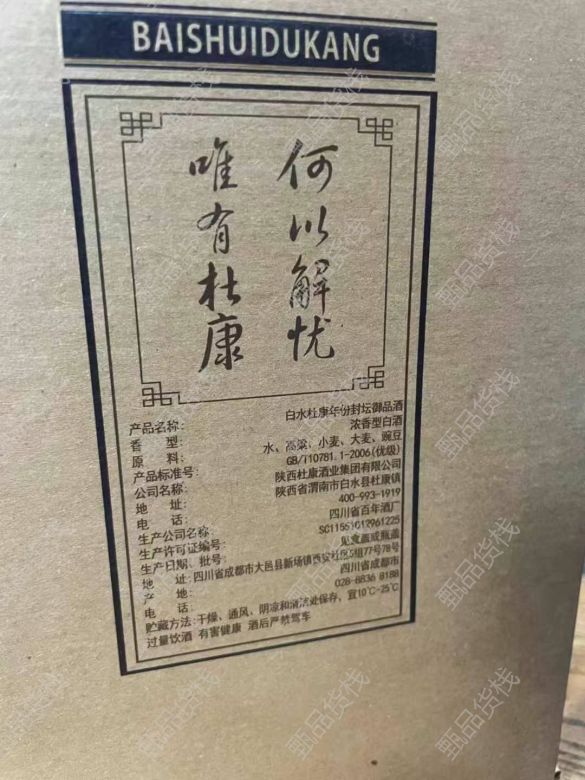 BAISHUIDUKANG
何以解忧
唯有杜康
产品名称: 白水杜康年份封坛御品酒
香 型: 浓香型白酒
原 料: 水、高粱、小麦、大麦、豌豆
产品标准号: GB/T10781.1-2006(优级)
公司名称: 陕西杜康酒业集团有限公司
地 址: 陕西省渭南市白水县杜康镇
电 话: 400-993-1919
生产公司名称: 四川省百年酒厂
生产许可证编号: SC11551012961225
生产日期、批号: 见盒盖或瓶盖
地 址: 四川省成都市大邑县新场镇西安社区5组77号78号
产 地: 四川省成都市
电 话: 028-8836 8188
贮藏方法:干燥、通风、阴凉和清洁处保存,宜10℃-25℃
过量饮酒 有害健康 酒后严禁驾车
甄品货栈